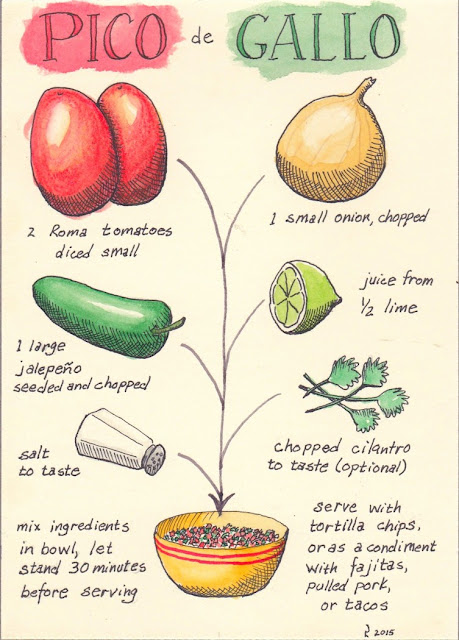 PICO de GALLO
2 Roma tomatoes
diced small
1 small onion, chopped
1 large
jalepeño
seeded and chopped
juice from
1/2 lime
salt
to taste
chopped cilantro
to taste (optional)
mix ingredients
in bowl, let
stand 30 minutes
before serving
serve with
tortilla chips,
or as a condiment
with fajitas,
pulled pork,
or tacos
2015